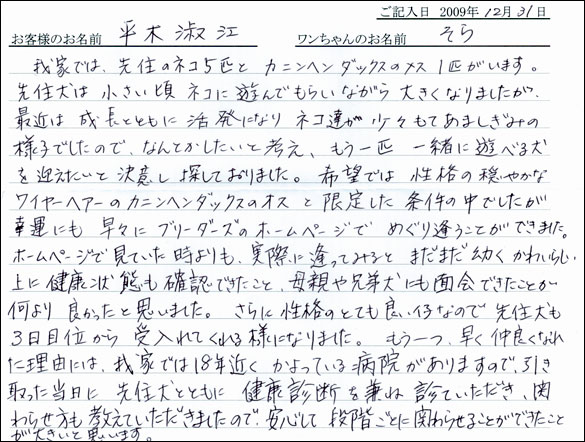 ご記入日 2009年12月31日
お客様のお名前 平木 淑江 ワンちゃんのお名前 そら
我家では、先住のネコ5匹と カニンヘンダックスのメス1匹がいます。
先住犬は 小さい頃 ネコに遊んでもらいながら 大きくなりましたが、
最近は 成長とともに 活発になり ネコ達が 少々もてあましぎみの
様子でしたので、なんとかしたいと考え、もう一匹 一緒に遊べる犬
を迎えたいと 決意し 探しておりました。希望では 性格の穏やかな
ワイヤーヘアーのカニンヘンダックスのオス と限定した 条件の中でしたが
幸運にも 早々に ブリーダーズのホームページで めぐり逢うことができました。
ホームページで見ていた時よりも、実際に逢ってみると まだまだ幼く かわいらしい
上に 健康状態も 確認できたこと、母親や兄弟犬にも面会できたことが
何より 良かったと思いました。さらに性格のとても良い仔なので 先住犬も
3日目位から 受入れてくれる様になりました。もう一つ、早く仲良くなれ
た理由には、我家では18年近く かよっている病院がありますので、引き
取った当日に 先住犬とともに 健康診断を兼ね 診ていただき、関
わらせ方も教えていただきましたので、安心して 段階ごとに関わらせることができたこと
が大きいと思います。